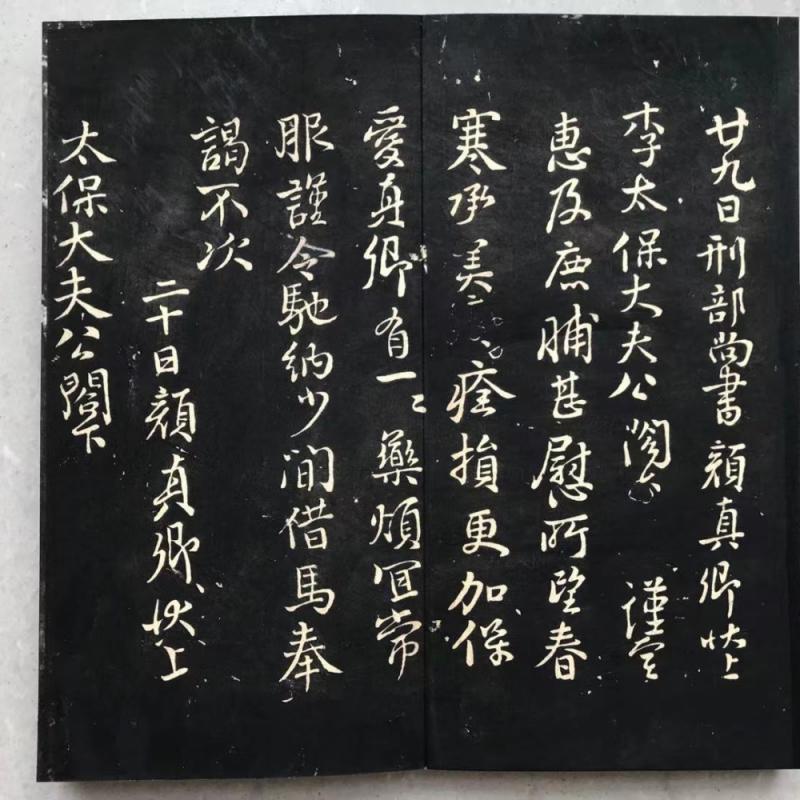 廿九日刑部尚書顏真卿狀上
李太保大夫公閣下 謹空
惠及鹿脯甚慰所望春
寒承美〻痊損更加保
愛真卿有一〻藥煩宜常
服謹令馳納少間借馬奉
謁不次
二十日顏真卿狀上
太保大夫公閤下